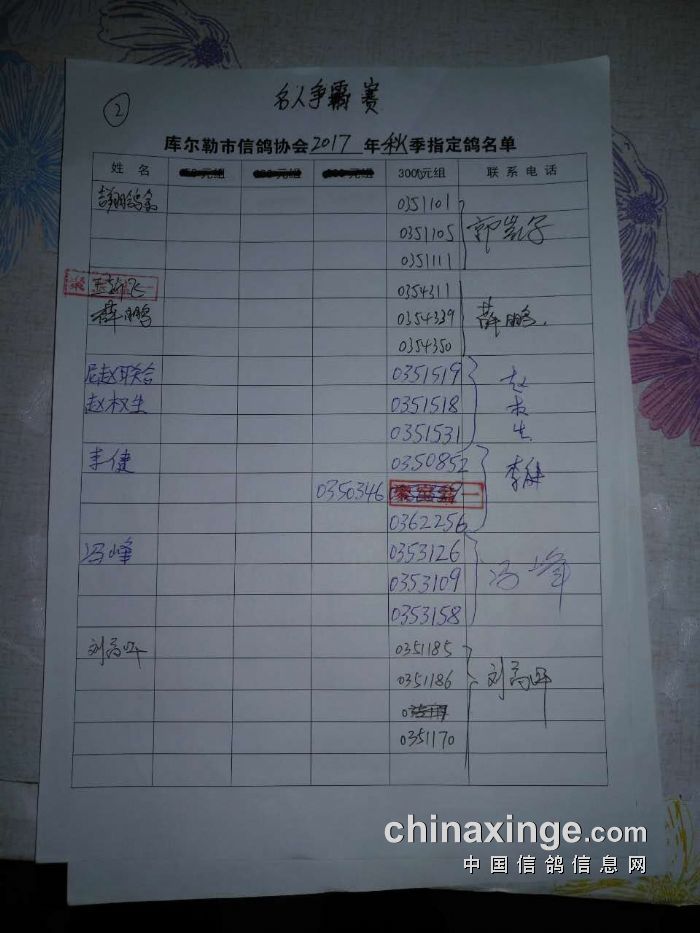 ②
名人争霸赛
库尔勒市信鸽协会2017年秋季指定鸽名单
姓 名 300元组 联系电话
0351101
0351105
0351111
0354311
薛鹏 0354339 薛鹏
0354350
尼赵联合 0351519 赵权生
赵权生 0351518
0351531
李健 0350852 李健
0350346
0362256
冯峰 0353126
0353109 冯峰
0353158
刘高峰 0351185
0351186 刘高峰
0351170
chinaxinge.com
中国信鸽信息网